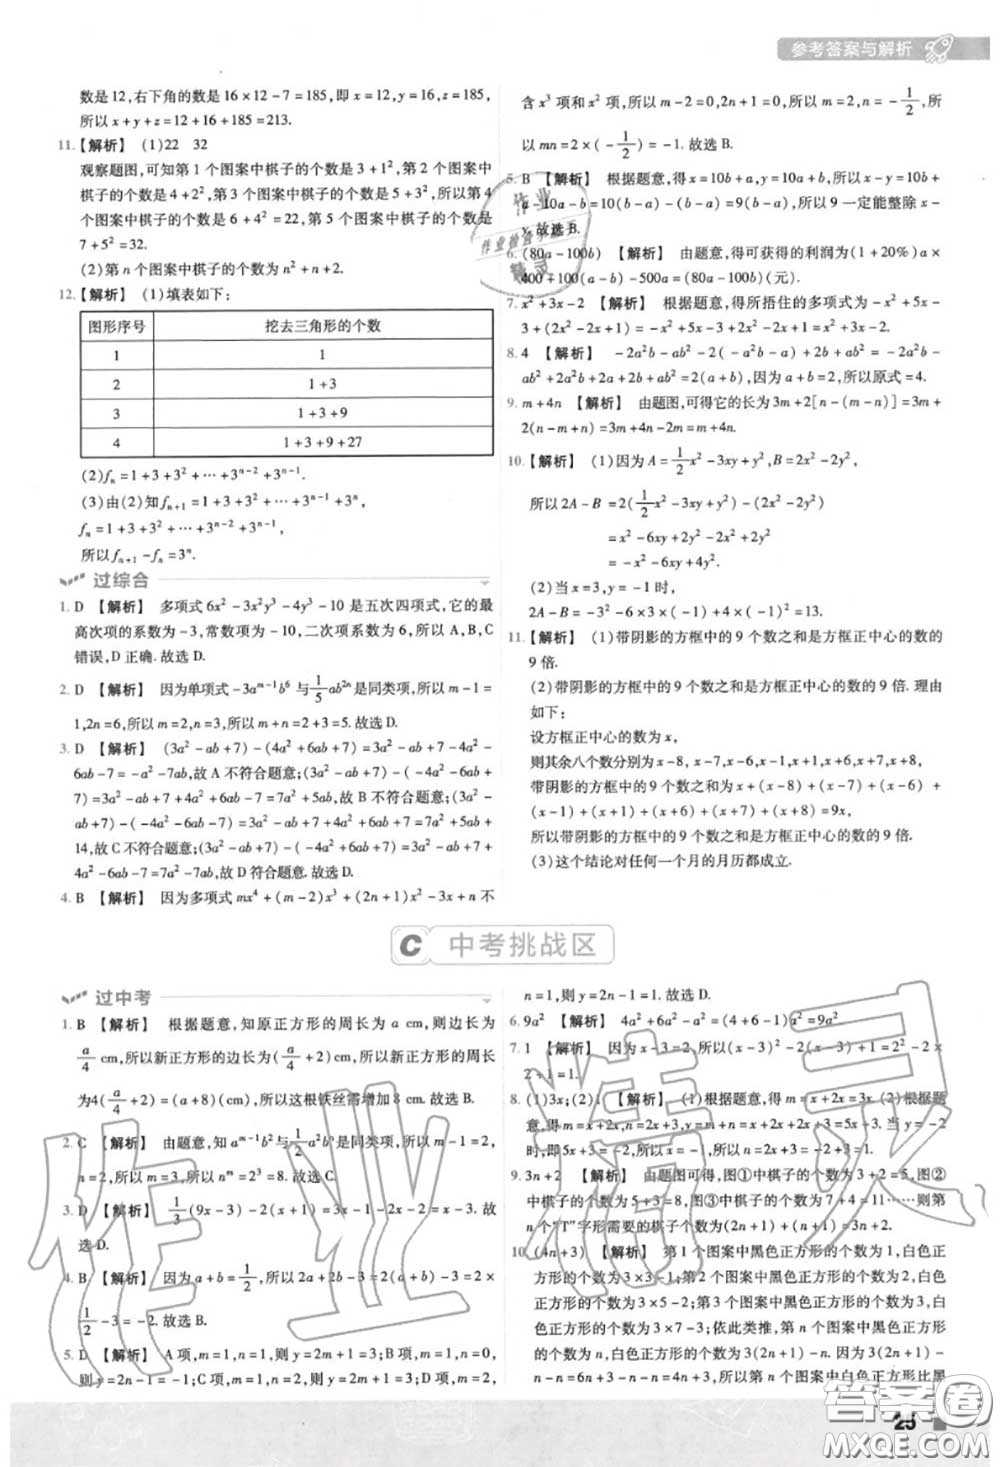 参考答案与解析
数是12,右下角的数是16×12-7=185,即x=12,y=16,z=185,
所以x+y+z=12+16+185=213.
11.【解析】 (1)22 32
观察题图,可知第1个图案中棋子的个数是3+1²,第2个图案
中棋子的个数是4+2²,第3个图案中棋子的个数是5+3²,所以第4
个图案中棋子的个数是6+4²=22,第5个图案中棋子的个数是
7+5²=32.
(2)第n个图案中棋子的个数为n²+n+2.
12.【解析】 (1)填表如下:
图形序号 挖去三角形的个数
1 1
2 1+3
3 1+3+9
4 1+3+9+27
(2)fₙ=1+3+3²+…+3ⁿ⁻²+3ⁿ⁻¹.
(3)由(2)知fₙ₊₁=1+3+3²+…+3ⁿ⁻¹+3ⁿ,
fₙ=1+3+3²+…+3ⁿ⁻²+3ⁿ⁻¹,
所以fₙ₊₁-fₙ=3ⁿ.
过综合
1. D 【解析】 多项式6x²-3x²y³-4y³-10是五次四项式,它的最
高次项的系数为-3,常数项为-10,二次项系数为6,所以A,B,C
错误,D正确.故选D.
2. D 【解析】 因为单项式-3aᵐ⁻¹b⁶与1/5ab²ⁿ是同类项,所以m-1=
1,2n=6,所以m=2,n=3,所以m+n=2+3=5.故选D.
3. D 【解析】 (3a²-ab+7)-(4a²+6ab+7)=3a²-ab+7-4a²-
6ab-7=-a²-7ab,故A不符合题意;(3a²-ab+7)-(-4a²-6ab-7)=
3a²-ab+7+4a²+6ab+7=7a²+5ab+14,故B不符合题意;(3a²-
ab+7)-(-4a²-6ab-7)=3a²-ab+7+4a²+6ab+7=7a²+5ab+
14,故C不符合题意;(3a²-ab+7)-(-4a²+6ab+7)=3a²-ab+
7+4a²-6ab-7=7a²-7ab,故D符合题意.故选D.
4. B 【解析】 因为多项式mx⁴+(m-2)x³+(2n+1)x²-3x+n不
含x³项和x²项,所以m-2=0,2n+1=0,所以m=2,n=-1/2,所
以mn=2×(-1/2)=-1.故选B.
5. B 【解析】 根据题意,得x=10b+a,y=10a+b,所以x-y=10b
+a-10a-b=10(b-a)-(b-a)=9(b-a),所以9一定能整除x-
y.故选B.
6. (80a-100b) 【解析】 由题意,得可获得的利润为(1+20%)a×
400+100(a-b)-500a=(80a-100b)(元).
7. x²+3x-2 【解析】 根据题意,得所捂住的多项式为-x²+5x-
3+(2x²-2x+1)=-x²+5x-3+2x²-2x+1=x²+3x-2.
8. 4 【解析】 -2a²b-ab²-2(-a²b-a)+2b+ab²=-2a²b-
ab²+2a²b+2a+2b+ab²=2(a+b),因为a+b=2,所以原式=4.
9. m+4n 【解析】 由题图,可得它的长为3m+2[n-(m-n)]=3m+
2(n-m+n)=3m+4n-2m=m+4n.
10.【解析】 (1)因为A=1/2x²-3xy+y²,B=2x²-2y²,
所以2A-B=2(1/2x²-3xy+y²)-(2x²-2y²)
=x²-6xy+2y²-2x²+2y²
=-x²-6xy+4y².
(2)当x=3,y=-1时,
2A-B=-3²-6×3×(-1)+4×(-1)²=13.
11.【解析】 (1)带阴影的方框中的9个数之和是方框正中心的数的
9倍.
(2)带阴影的方框中的9个数之和是方框正中心的数的9倍.理由
如下:
设方框正中心的数为x,
则其余八个数分别为x-8,x-7,x-6,x-1,x+1,x+6,x+7,x+8,
带阴影的方框中的9个数之和为x+(x-8)+(x-7)+(x-6)+
(x-1)+(x+1)+(x+6)+(x+7)+(x+8)=9x,
所以带阴影的方框中的9个数之和是方框正中心的数的9倍.
(3)这个结论对任何一个月的月历都成立.
C 中考挑战区
过中考
1. B 【解析】 根据题意,知原正方形的周长为a cm,则边长为
a/4 cm,所以新正方形的边长为(a/4+2)cm,所以新正方形的周长
为4(a/4+2)=(a+8)(cm),所以这根铁丝需增加8 cm.故选B.
2. C 【解析】 由题意,知aᵐ⁻¹b²与1/2a²bⁿ是同类项,所以m-1=2,
n=2,所以m=3,n=2,所以nᵐ=2³=8.故选C.
3. D 【解析】 1/3(9x-3)-2(x+1)=3x-1-2x-2=x-3.故
选D.
4. B 【解析】 因为a+b=1/2,所以2a+2b-3=2(a+b)-3=2×
1/2-3=-2.故选B.
5. D 【解析】 A项,m=1,n=1,则y=2m+1=3;B项,m=1,n=0,
则y=2n-1=-1;C项,m=1,n=2,则y=2m+1=3;D项,m=2,
n=1,则y=2n-1=1.故选D.
6. 9a² 【解析】 4a²+6a²-a²=(4+6-1)a²=9a²
7. 1 【解析】 因为x-3=2,所以(x-3)²-2(x-3)+1=2²-2×
2+1=1.
8. (1)3x;(2)1 【解析】 (1)根据题意,得m=x+2x=3x.(2)根据题
意,得m=x+2x=3x,n=2x+3.当y=-2时,m+n=3x+2x+3=5x+
3=y,即5x+3=-2,所以x=-1,所以n=2x+3=-2+3=1.
9. 3n+2 【解析】 由题图可得,图①中棋子的个数为3+2=5,图②
中棋子的个数为5+3=8,图③中棋子的个数为7+4=11……则第
n个“T”字形需要的棋子个数为(2n+1)+(n+1)=3n+2.
10. (4n+3) 【解析】 第1个图案中黑色正方形的个数为1,白色正
方形的个数为3×3-1;第2个图案中黑色正方形的个数为2,白色
正方形的个数为3×5-2;第3个图案中黑色正方形的个数为3,白
色正方形的个数为3×7-3;依此类推,第n个图案中黑色正方形
的个数为n,白色正方形的个数为3(2n+1)-n,所以第n个图案
中白色正方形的个数比黑
25
作业
作业检查小助手
精灵
作业精灵
答案圈
MXQE.COM